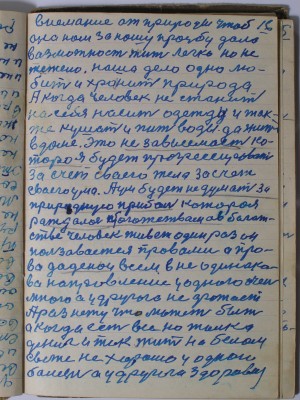 внемание от природы чтоб 16
оно нам за нашу прозбу дало
вазможность жит легко но не
тежело. наша дело одно лю-
бит и хронит природа
А когда человек не станит
на себя насит одежды и так-
же кушат и пит воды да жит
вдоме. Это не зависемаст ко-
торая будет прогрессироват
За счет своего тела засчет
своего ума. А ум будет недумат за
природную прибал которая
багат-
стве человек живет один раз он
ползавается правами а про-
ва даденои всем в не одинака-
ва направление у одного очен
много а у другого не дастаст
А раз нету что может быт
а когда ест все но толка
денги и так жит на белом
свете не хорошо у одном
болеет а у другом здоровай